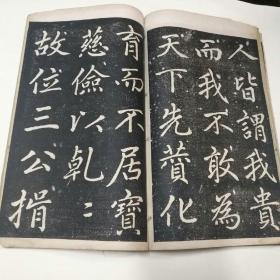 人皆謂我貴
而我不敢為
天下先蕢化
育而不居寶
慈儉以乹〻
故位三公揖